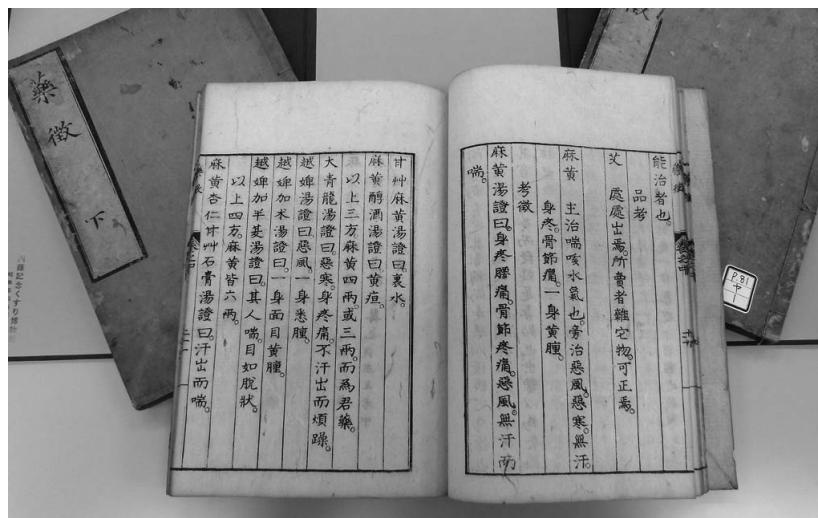 能治者也。
品考
艾 處處出焉。所賣者雜它物。可正焉。
麻黃 主治喘咳水氣也。旁治惡風。惡寒。無汗。
身疼。骨節痛。一身黃腫。
考徵
麻黃湯證曰。身疼腰痛。骨節疼痛。惡風。無汗而
喘。
甘艸麻黃湯證曰。裏水。
麻黃醇酒湯證曰。黃疸。
以上三方。麻黃四兩或三兩。而爲君藥。
大青龍湯證曰。惡寒。身疼痛。不汗出而煩躁。
越婢湯證曰。惡風。一身悉腫。
越婢加朮湯證曰。一身面目黃腫。
越婢加半夏湯證曰。其人喘。目如脫狀。
以上四方。麻黃皆六兩。
麻黃杏仁甘艸石膏湯證曰。汗出而喘。
藥徵 下
P.81
中
1